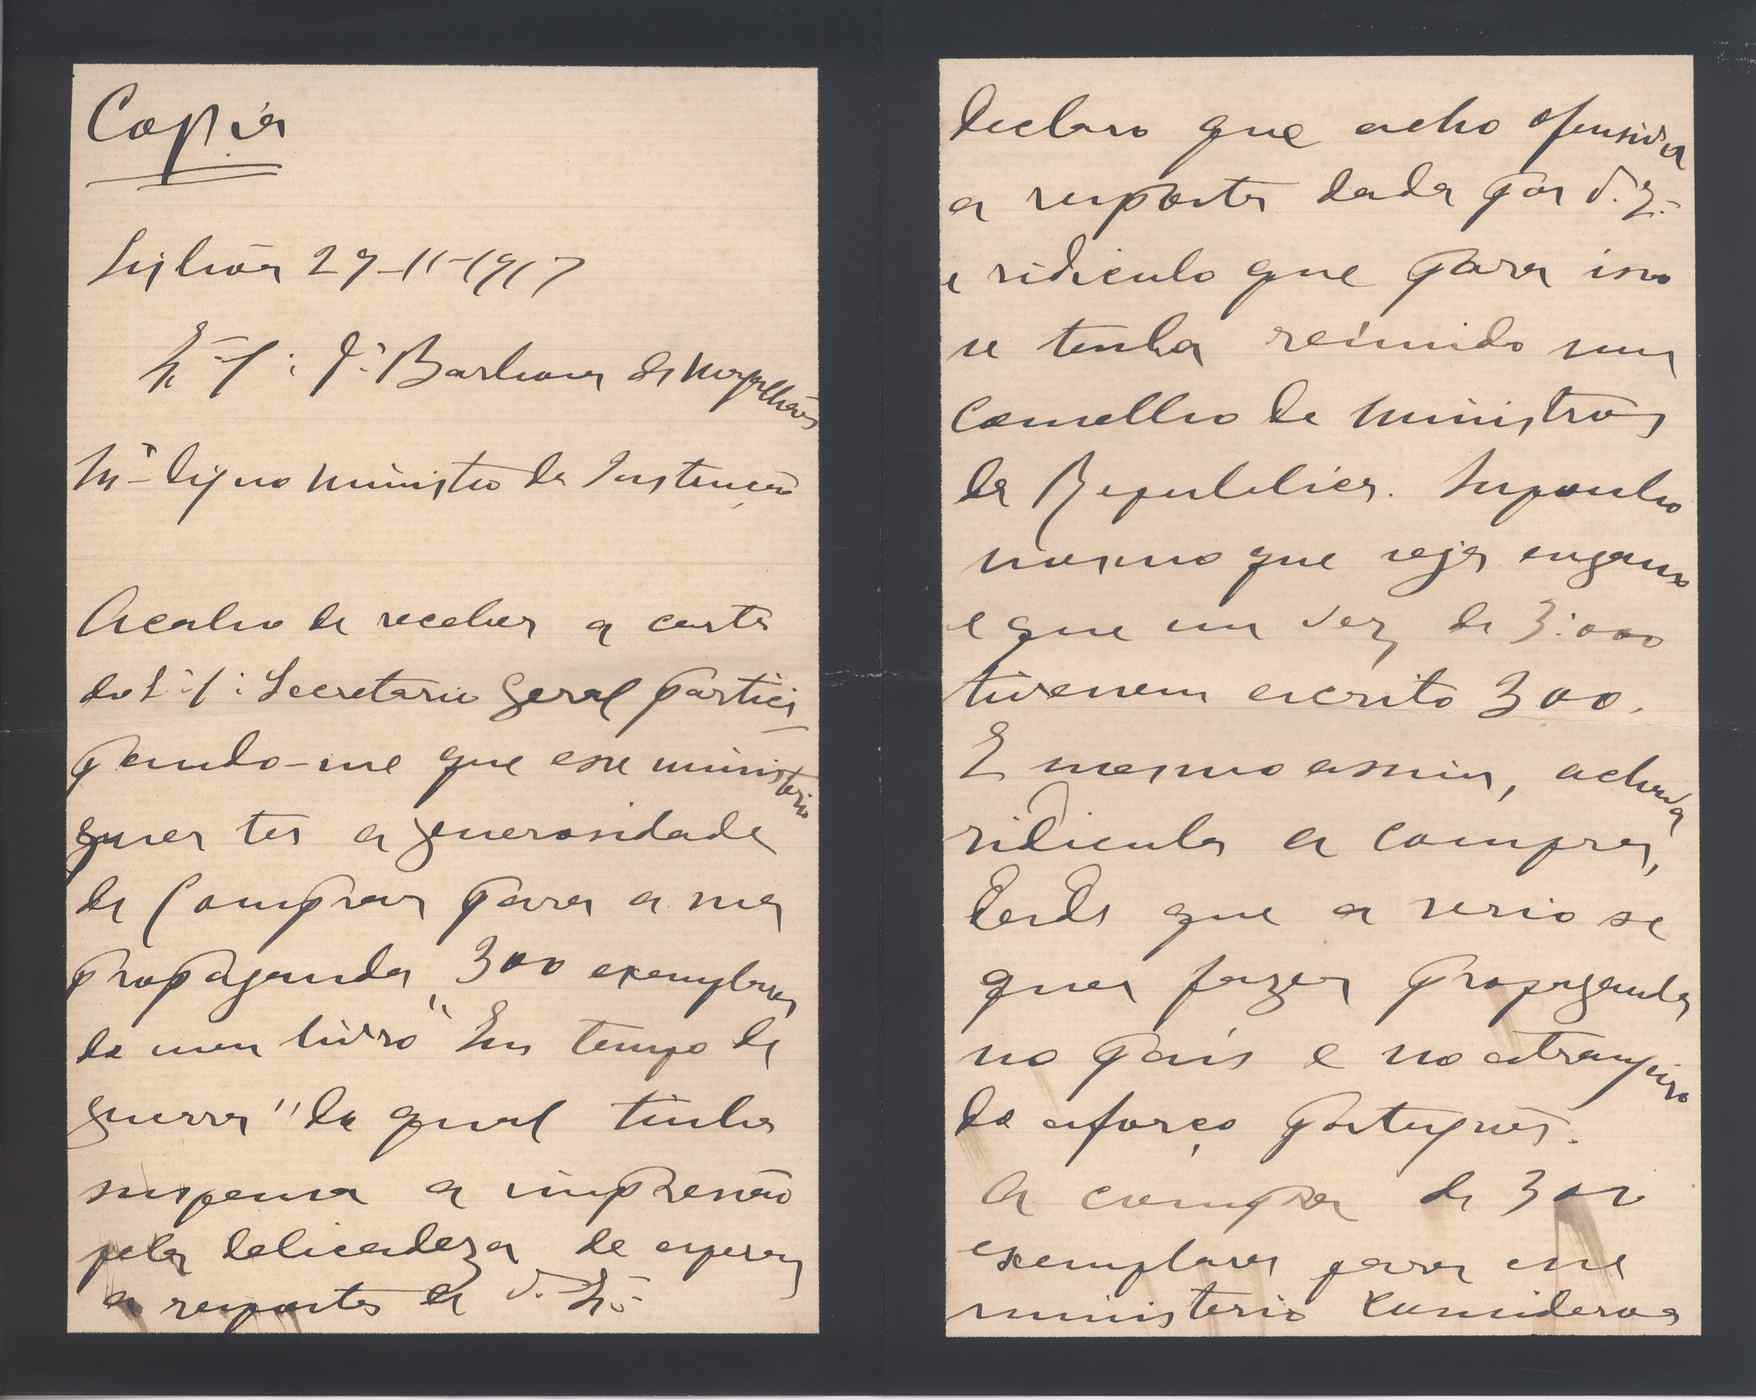 Copia
Lisboa 29-11-1917
Exº Sr. Dr. Barbosa de Magalhães
Mº digno Ministro da Instrução
Acabo de receber a carta
do Exº Sr. Secretario Geral partici
pando-me que esse ministerio
quer ter a generosidade
de comprar para a sua
propaganda, 300 exemplares
do meu livro "Em tempo de
guerra" da qual tinha
suspensa a impressão
pela delicadeza de esperar
a resposta de V. Exª
Declaro que acho ofensiva
a resposta dada por V. Exª
e ridiculo que para isso
se tenha reúnido um
Conselho de Ministros
da Republica. Suponho
mesmo que seja engano
e que em vez de 3:000
tivessem escrito 300.
E mesmo assim, achava
ridicula a compra,
desde que a serio se
quer fazer propaganda
no país e no estrangeiro
do esforço português.
A compra de 300
exemplares para esse
ministerio considero-a